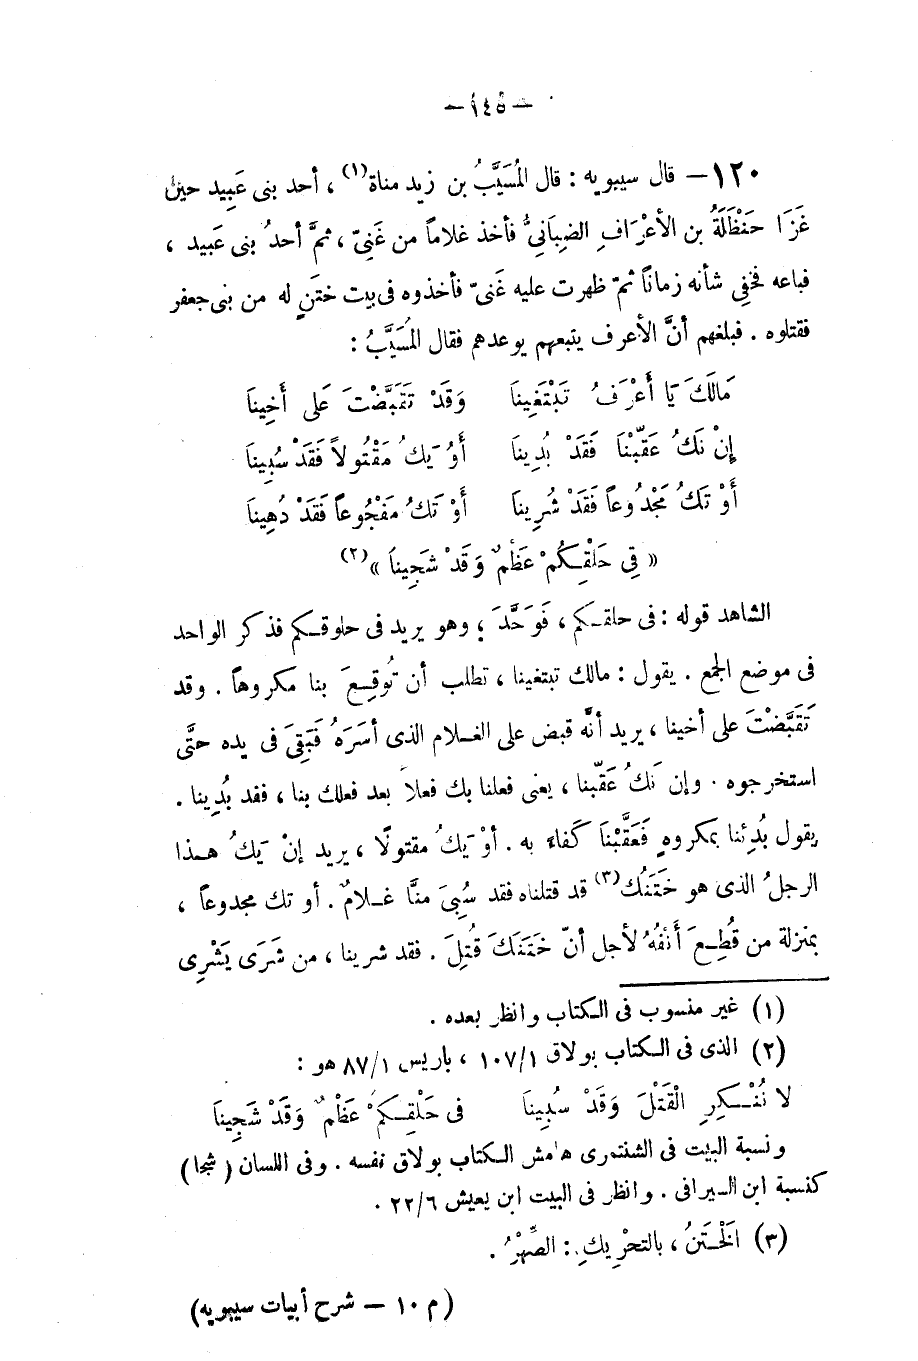 — ١٤٥ —
١٢٠ — قال سيبويه : قال المُسَيَّبُ بن زيد مناة(١) ، أحد بنى عَبِيد حين
غَزَا حَنْظَلَةُ بن الأعْرَافِ الضِبَانيُّ فأخذ غلاماً من غَنِىّ ، ثمَّ أحدُ بنى عَبيد ،
فباعه فخَفِى شأنه زماناً ثمّ ظهرت عليه غَنىّ فأخذوه فى بيت ختَنٍ له من بنى جعفر
فقتلوه . فبلغهم أنَّ الأعرف يتبعهم يوعدهم فقال المُسَيَّبُ :
مَالَكَ يَا أَعْرَفُ تَبْتَغِينَا وَقَدْ تَقَبَّضْتَ عَلى أَخِينَا
إِنْ نَكُ عَقَّبْنَا فَقَدْ بُدِينَا أَوْ يَكُ مَقْتُولاً فَقَدْ سُبِينَا
أَوْ تَكُ مَجْدُوعاً فَقَدْ شُرِينَا أَوْ تَكُ مَفْجُوعاً فَقَدْ دُهِينَا
« فِى حَلْقِكُمْ عَظْمٌ وَقَدْ شَجِينَا »(٢)
الشاهد قوله : فى حلقكم ، فَوَحَّدَ ، وهو يريد فى حلوقكم فذكر الواحد
فى موضع الجمع . يقول : مالك تبتغينا ، تطلب أن تُوقِعَ بنا مكروهاً . وقد
تَقَبَّضْتَ على أخينا ، يريد أنَّه قبض على الغلام الذى أسَرَهُ فَبَقِىَ فى يده حتَّى
استخرجوه . وإن نَكُ عَقَّبنا ، يعنى فعلنا بك فعلاً بعد فعلك بنا ، فقد بُدِينا .
يقول بُدِئنا بمكروهٍ فَعَقَّبْنَا كَفاءً به . أوْ يَكُ مقتولًا ، يريد إنْ يَكُ هذا
الرجلُ الذى هو خَتَنُك(٣) قد قتلناه فقد سُبِىَ منَّا غلامٌ . أو تك مجدوعاً ،
بمنزلة من قُطِعَ أَنفُهُ لأجل أنّ خَتَنَكَ قُتِلَ . فقد شرينا ، من شَرَى يَشْرِى
(١) غير منسوب فى الكتاب وانظر بعده .
(٢) الذى فى الكتاب بولاق ١٠٧/١ ، باريس ٨٧/١ هو :
لا نُنْكِرِ الْقَتْلَ وَقَدْ سُبِينَا فى حَلْقِكمُ عَظْمٌ وَقَدْ شَجِينَا
ونسبة البيت فى الشنتمرى هامش الكتاب بولاق نفسه . وفى اللسان ( شجا )
كنسبة ابن السيرافى . وانظر فى البيت ابن يعيش ٢٢/٦ .
(٣) الَخْتَنُ ، بالتحْرِيكِ : الصِّهْرُ .
(م ١٠ — شرح أبيات سيبويه)